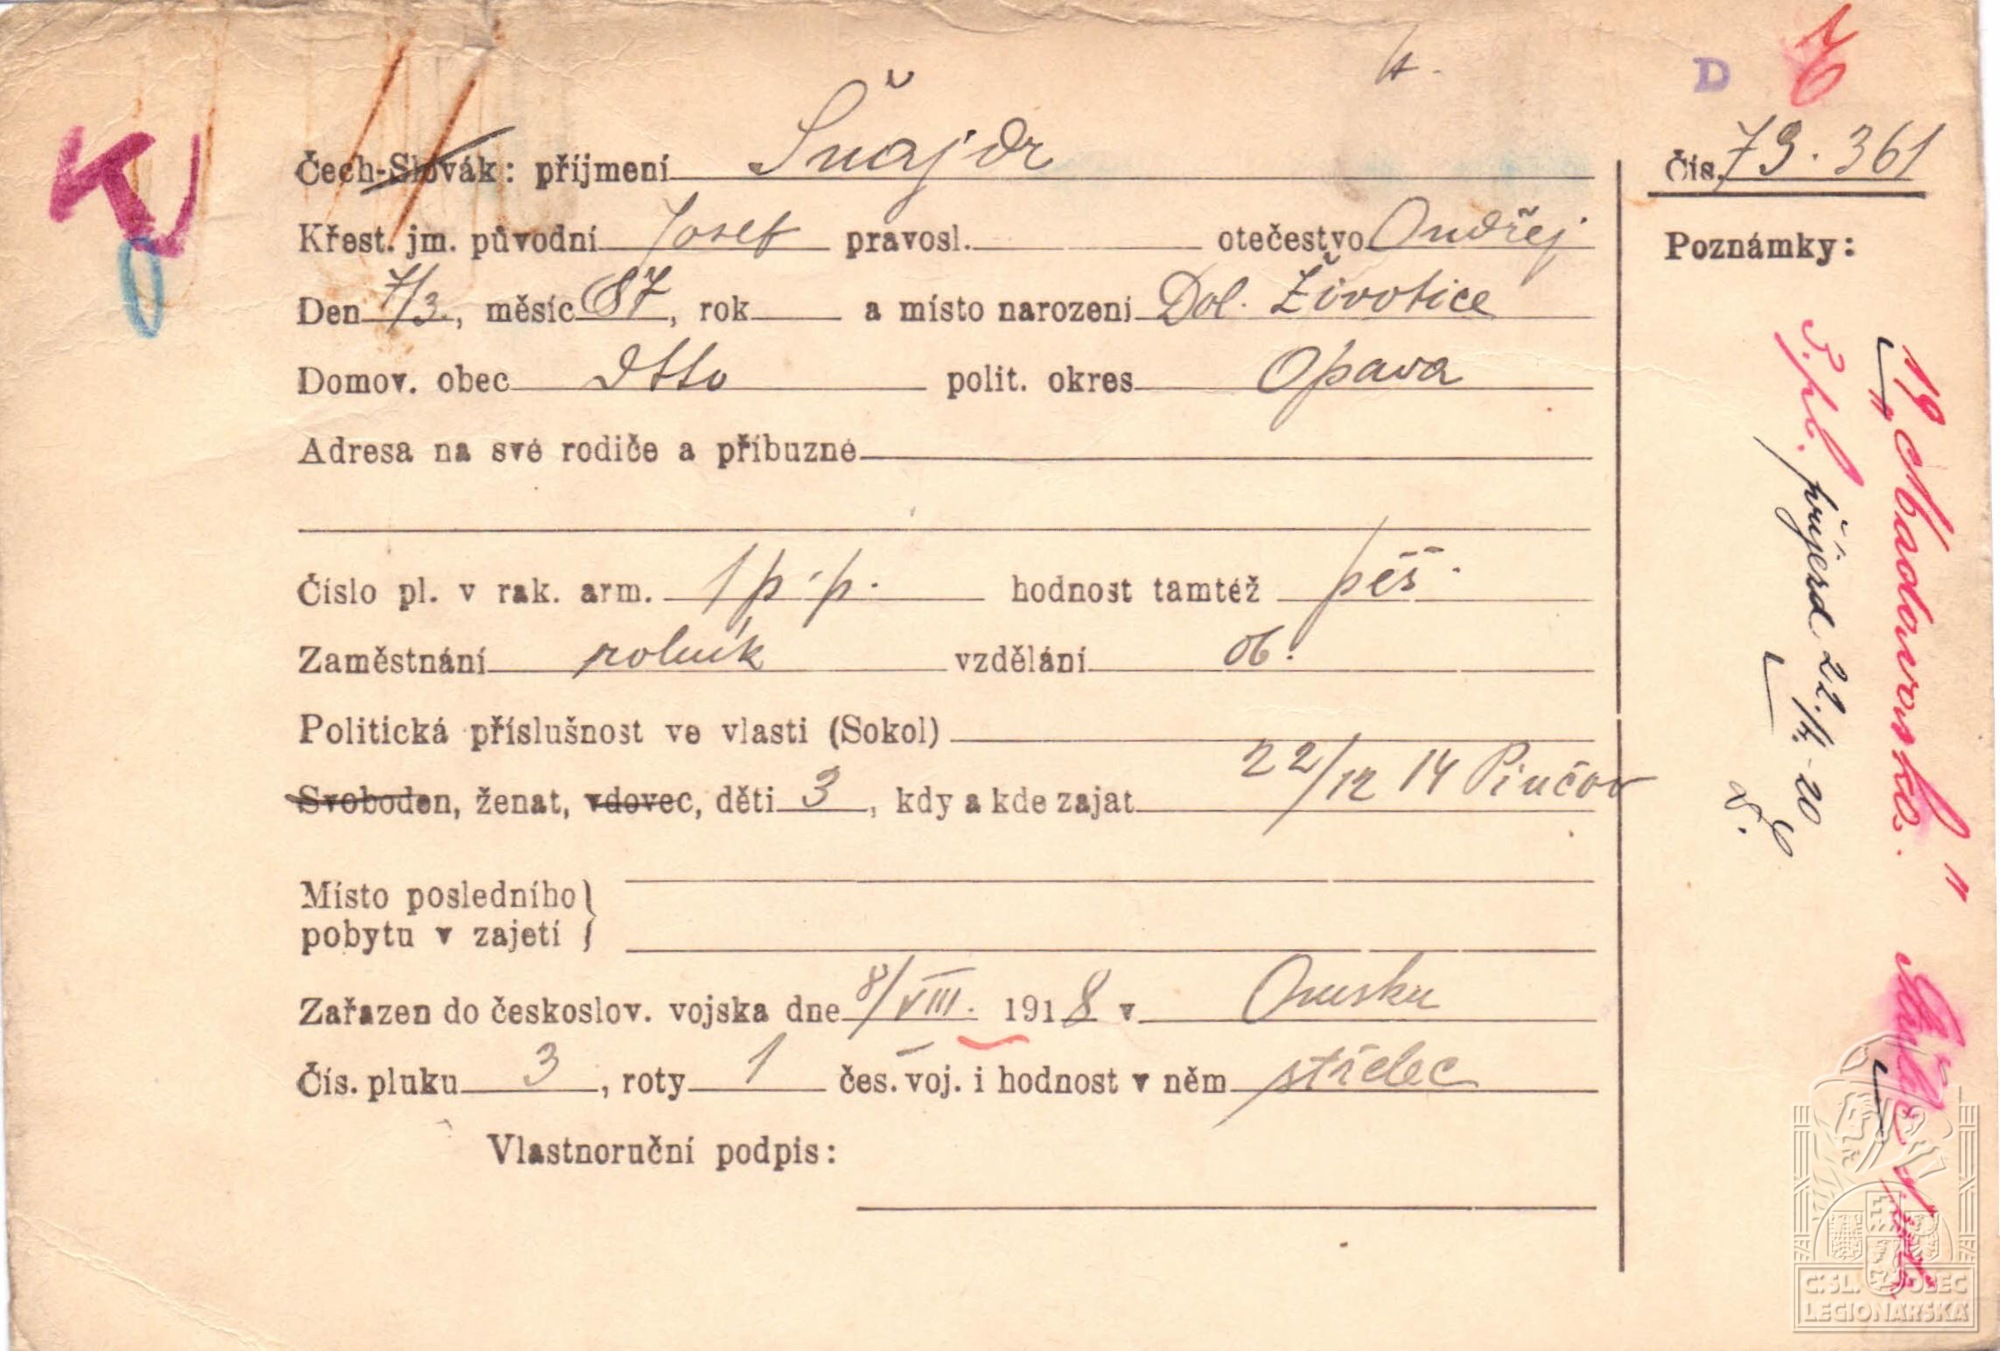 D
Čech-Slovák: příjmení Šnajdr
Čís. 79.361
Křest. jm. původní Josef pravosl. otečestvo Ondřej
Poznámky:
Den 7/3, měsíc 87, rok a místo narození Dol. Životice
Domov. obec dtto polit. okres Opava
Adresa na své rodiče a příbuzné
Číslo pl. v rak. arm. 1 p. p. hodnost tamtéž pěš.
Zaměstnání rolník vzdělání ob.
Politická příslušnost ve vlasti (Sokol)
Svoboden, ženat, vdovec, děti 3, kdy a kde zajat 22/12 14 Pinčov
Místo posledního
pobytu v zajetí
Zařazen do českoslov. vojska dne 8/VIII. 1918 v Omsku
Čís. pluku 3, roty 1 čes. voj. i hodnost v něm střelec
Vlastnoruční podpis:
3. pl. příjezd 22./4.-20
19 "Madawaska."
Č. SL. OBEC
LEGIONÁŘSKÁ